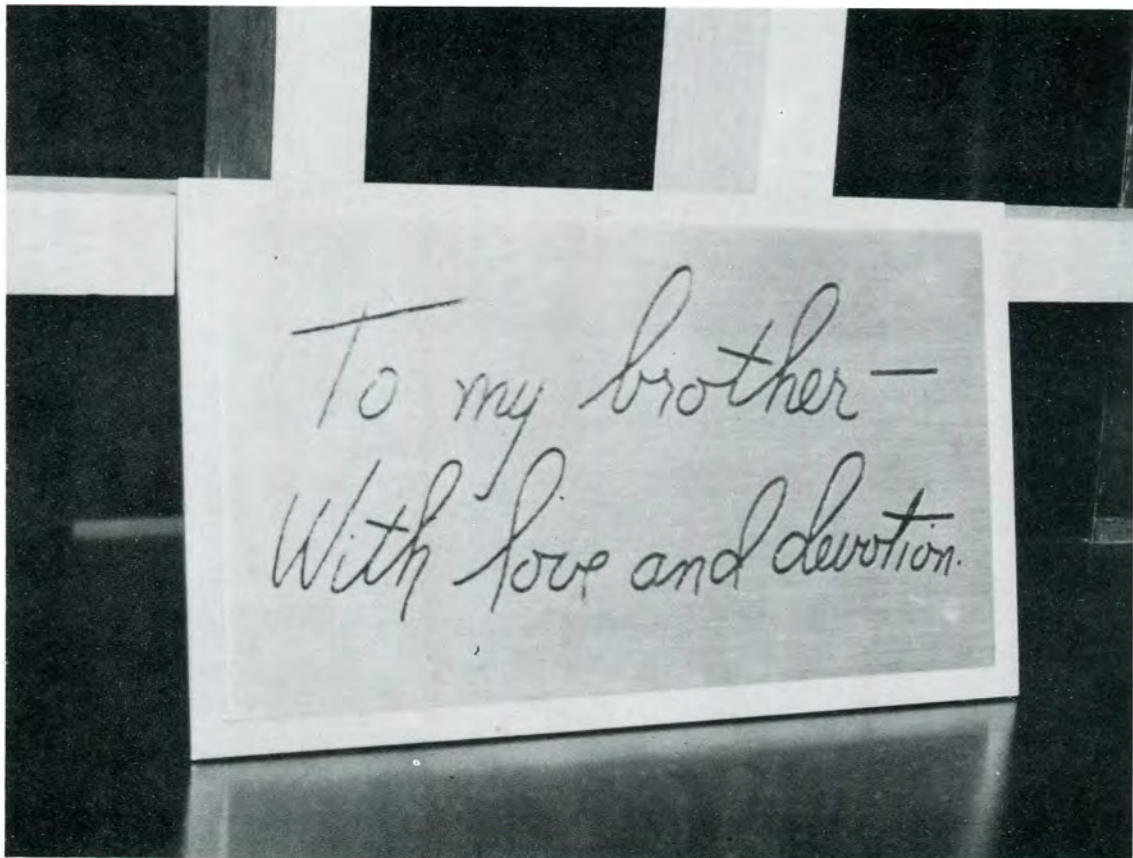 To my brother —
With love and devotion.